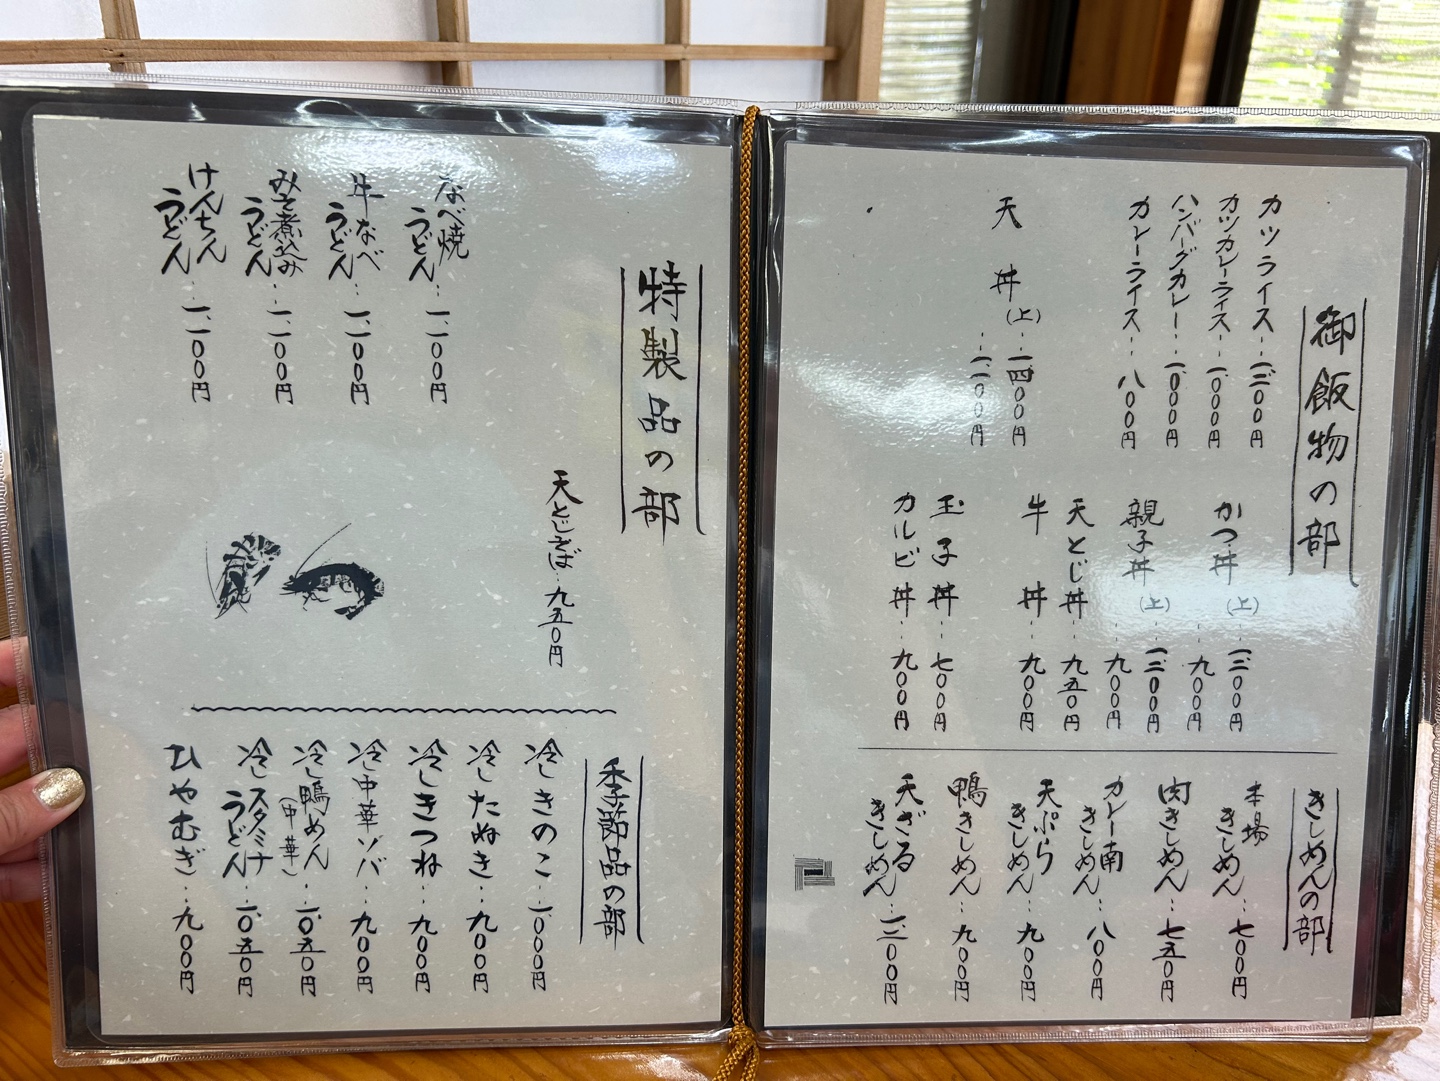 御飯物の部
カツライス…一、二〇〇円
カツカレーライス…一、〇〇〇円
ハンバーグカレー…一、〇〇〇円
カレーライス…八〇〇円
天丼(上)…一、四〇〇円
…一、一〇〇円
かつ丼(上)…一、二〇〇円
…九〇〇円
親子丼(上)…一、二〇〇円
…九〇〇円
天とじ丼…九五〇円
牛丼…九〇〇円
玉子丼…七〇〇円
カルビ丼…九〇〇円
きしめんの部
本場きしめん…七〇〇円
肉きしめん…七五〇円
カレー南きしめん…八〇〇円
天ぷらきしめん…九〇〇円
鴨きしめん…九〇〇円
天ざるきしめん…一、二〇〇円
特製品の部
なべ焼うどん…一、一〇〇円
牛なべうどん…一、一〇〇円
みそ煮込みうどん…一、一〇〇円
けんちんうどん…一、一〇〇円
天とじそば…九五〇円
季節品の部
冷しきのこ…一、〇〇〇円
冷したぬき…九〇〇円
冷しきつね…九〇〇円
冷し中華ソバ…九〇〇円
冷し鴨めん(中華)…一、〇五〇円
冷しスタミナうどん…一、〇五〇円
ひやむぎ…九〇〇円